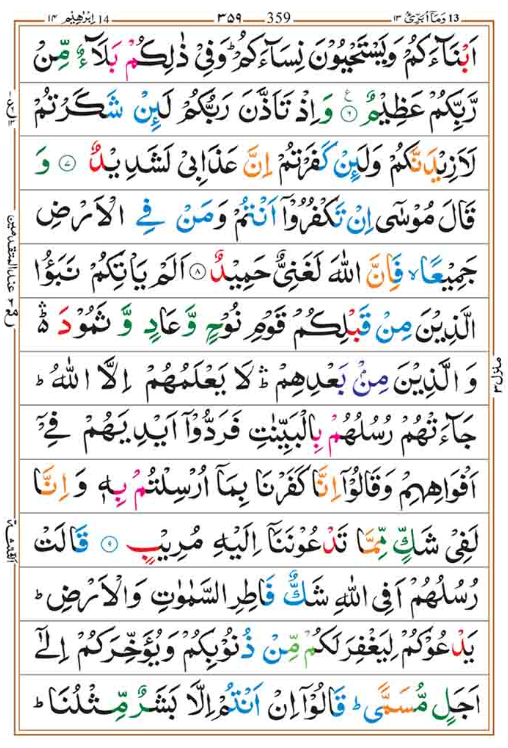 13 وَمَآ اُبَرِّئُ ١٣ 359 ٣٥٩ 14 اِبْرٰهِيْم ١٤
اَبْنَآءَكُمْ وَيَسْتَحْيُوْنَ نِسَآءَكُمْ ؕ وَفِيْ ذٰلِكُمْ بَلَآءٌ مِّنْ
رَّبِّكُمْ عَظِيْمٌ ۟۶ وَاِذْ تَاَذَّنَ رَبُّكُمْ لَئِنْ شَكَرْتُمْ
لَاَزِيْدَنَّكُمْ وَلَئِنْ كَفَرْتُمْ اِنَّ عَذَابِيْ لَشَدِيْدٌ ۟۷ وَ
قَالَ مُوْسٰٓى اِنْ تَكْفُرُوْٓا اَنْتُمْ وَمَنْ فِي الْاَرْضِ
جَمِيْعًا ۙ فَاِنَّ اللّٰهَ لَغَنِيٌّ حَمِيْدٌ ۟۸ اَلَمْ يَاْتِكُمْ نَبَؤُا
الَّذِيْنَ مِنْ قَبْلِكُمْ قَوْمِ نُوْحٍ وَّعَادٍ وَّثَمُوْدَ ۛؕ
وَالَّذِيْنَ مِنْ بَعْدِهِمْ ۛؕ لَا يَعْلَمُهُمْ اِلَّا اللّٰهُ ؕ
جَآءَتْهُمْ رُسُلُهُمْ بِالْبَيِّنٰتِ فَرَدُّوْٓا اَيْدِيَهُمْ فِيْٓ
اَفْوَاهِهِمْ وَقَالُوْٓا اِنَّا كَفَرْنَا بِمَآ اُرْسِلْتُمْ بِهٖ وَاِنَّا
لَفِيْ شَكٍّ مِّمَّا تَدْعُوْنَنَآ اِلَيْهِ مُرِيْبٍ ۟۹ قَالَتْ
رُسُلُهُمْ اَفِي اللّٰهِ شَكٌّ فَاطِرِ السَّمٰوٰتِ وَالْاَرْضِ ؕ
يَدْعُوْكُمْ لِيَغْفِرَ لَكُمْ مِّنْ ذُنُوْبِكُمْ وَيُؤَخِّرَكُمْ اِلٰٓى
اَجَلٍ مُّسَمًّى ؕ قَالُوْٓا اِنْ اَنْتُمْ اِلَّا بَشَرٌ مِّثْلُنَا ؕ
منزل ۳